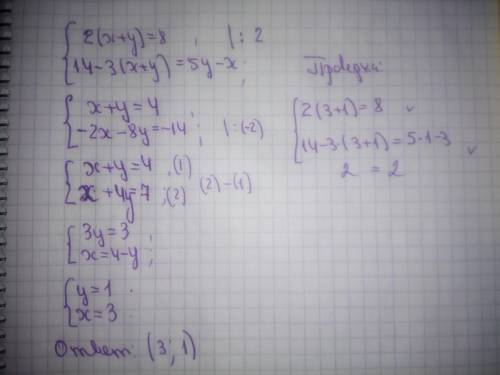 2(x+y)=8 , |: 2
14-3(x+y)=5y-x;
x+y=4 ;
-2x-8y=-14 |:(-2)
x+y=4 ,(1)
x+4y=7 ;(2) (2)-(1)
3y=3 ;
x=4-y;
y=1 .
x=3 .
Ответ: (3; 1)
Проверка:
2(3+1)=8 ✓
14-3(3+1)=5·1-3 ✓
2 = 2